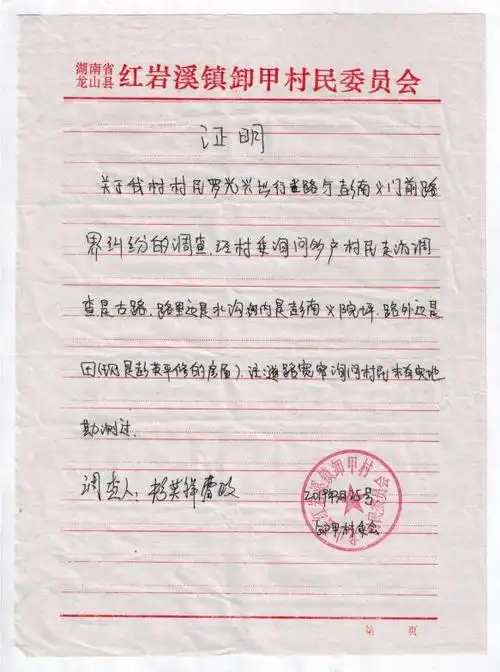 湖南省
龙山县 红岩溪镇卸甲村民委员会
证明
关于我村村民罗光兴出行道路与彭南义门前路
界纠纷的调查,经村委询问多户村民走访调
查是古路、路里边是水沟沟内是彭南义院坪,路外边是
田(现是彭英平修的房屋),注道路宽窄询问村民未有实地
勘测过.
调查人:
2019年 月25号
卸甲村委会
红岩溪镇卸甲村民委员会
第 页